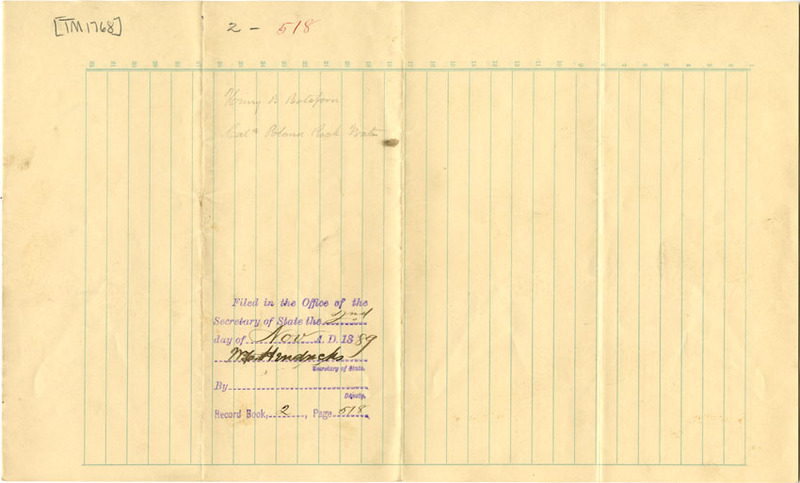 [TM1768]
2 - 518
Henry B Botsford
Cal^a Poland Rock Water
Filed in the Office of the
Secretary of State the 2nd
day of Nov A. D. 1889
W C Hendricks
Secretary of State.
By
Deputy.
Record Book, 2, Page 518.